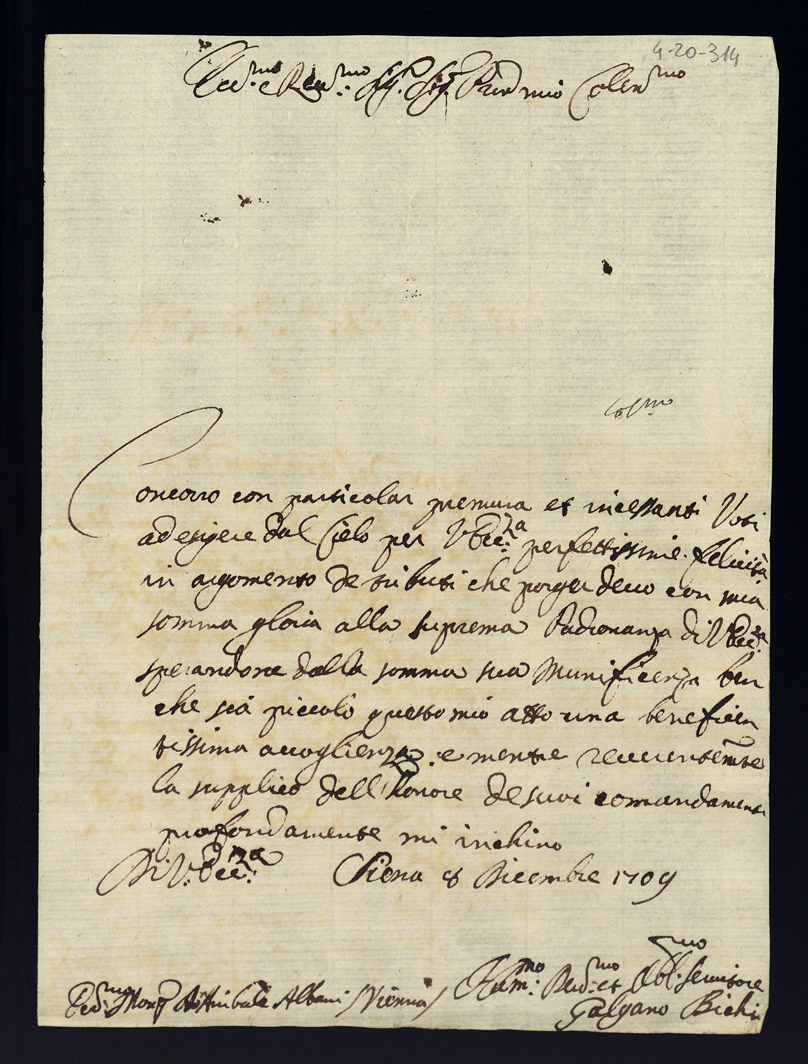 4-20-314
Ecc.mo e Rev.mo Sig. Sig. Pron mio Colen.mo
Col.mo
Concorro con particolar premura et incessanti Voti
ad esigere dal Cielo per V. Ecc.za perfettissime felicità
in argomento de tributi che porger devo con mia
somma gloria alla suprema Padronanza di V. Ecc.za
sperandone dalla somma sua Munificenza ben
che sia piccolo questo mio atto una beneficen
tissima accoglienza e mentre reverentem.te
la supplico dell'honore de suoi comandamenti
profondamente mi inchino
Di V. Ecc.za Siena 8 Dicembre 1709
Hum.mo Dev.mo et Obl.mo Servitore
Ecc.mo Mons. Annibale Albani /Vienna/
Galgano Bichi